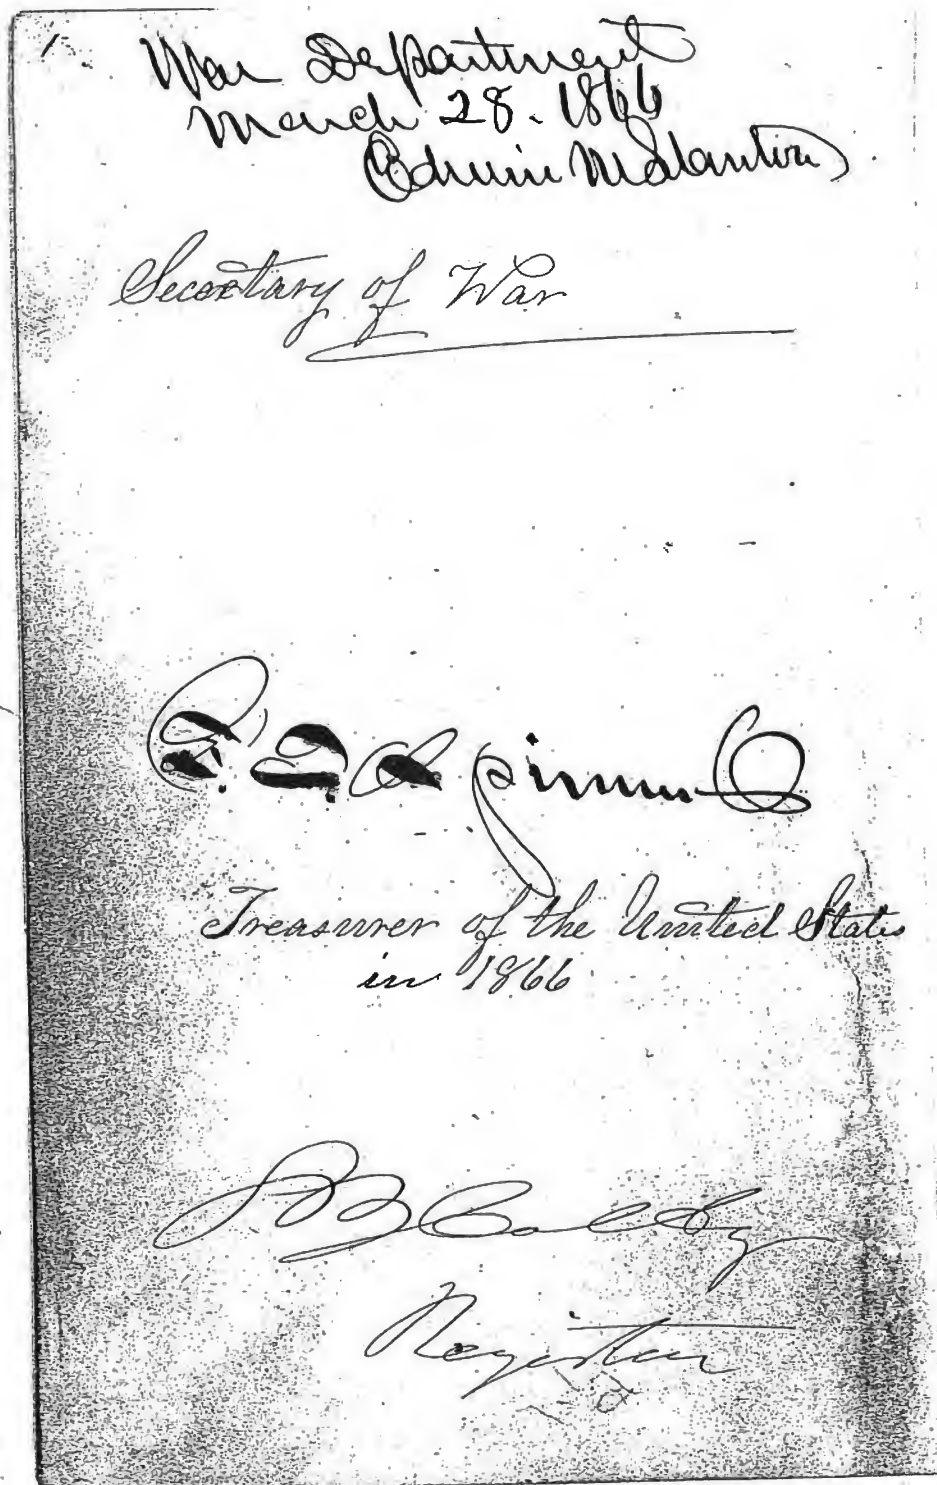 War Department
March 28. 1866
Edwin M Stanton
Secretary of War
F. E. Spinner
Treasurer of the United States
in 1866
S B Colby
Register